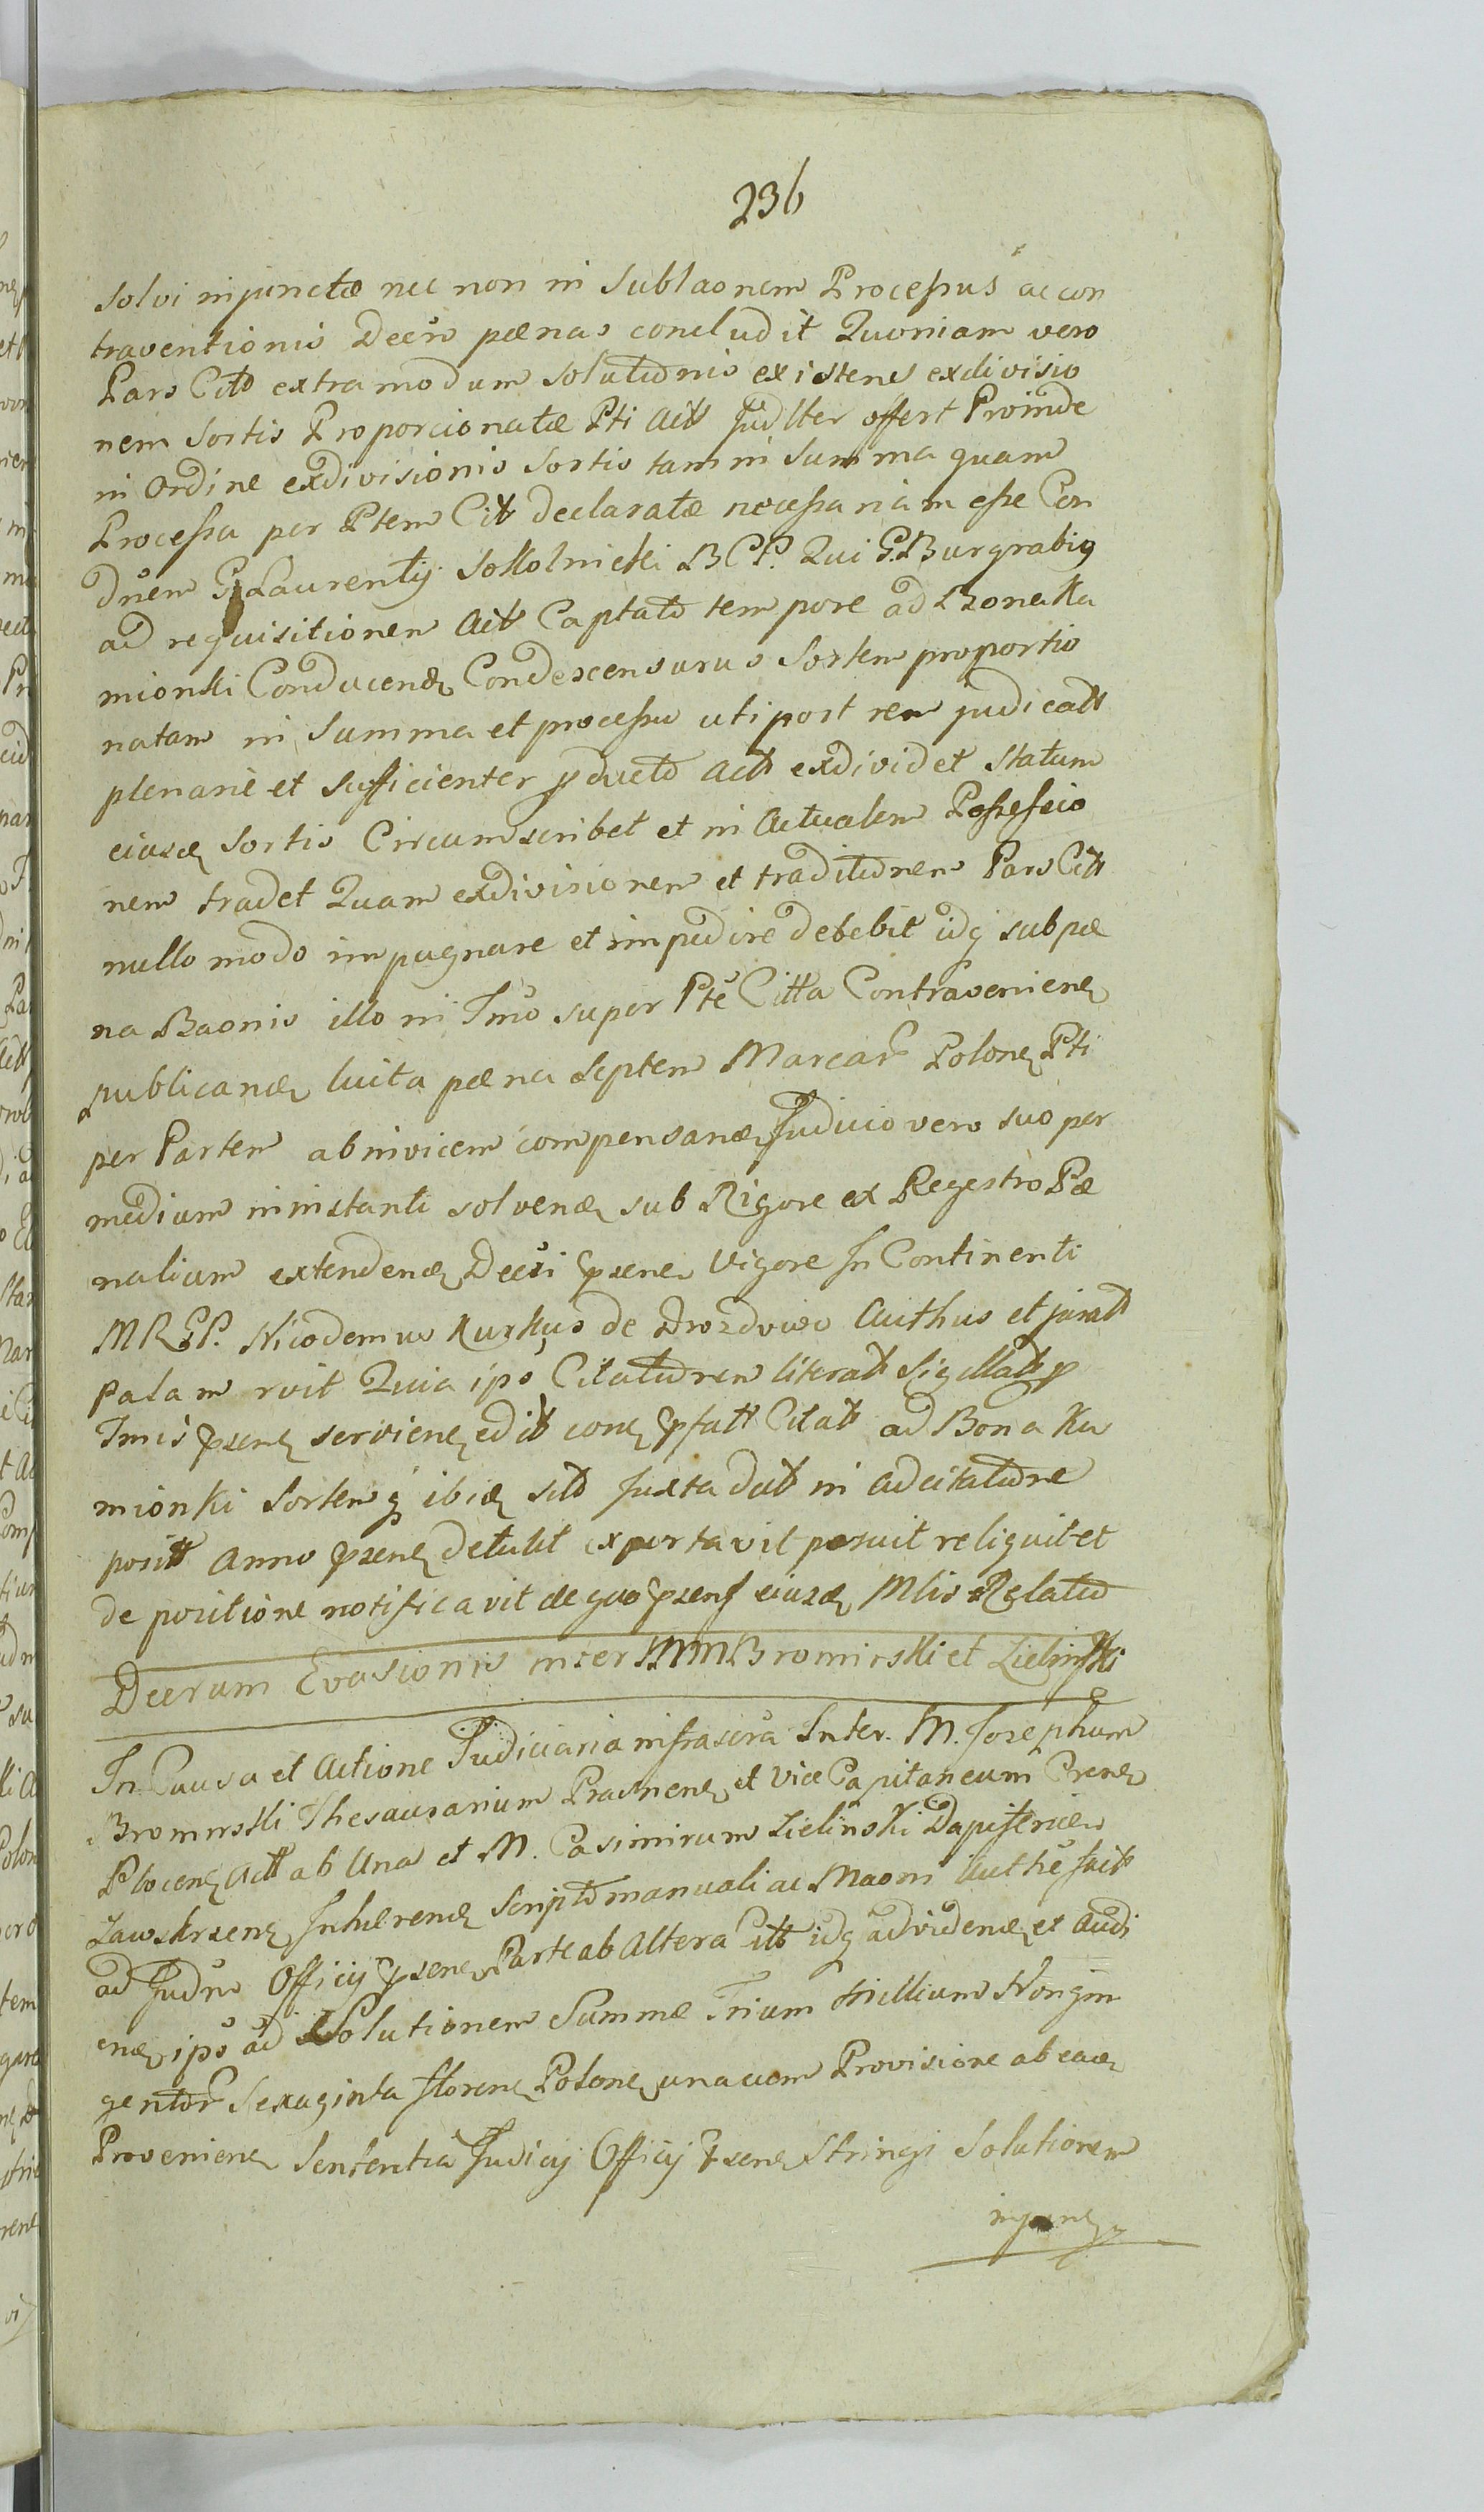 236
solvi injunctæ nec non in sublaonem Processus ac con
traventionis Decro pænas concludit Quoniam vero
Pars Citta extra modum solutionis existens exdivisio
nem sortis Proporcionatæ Pti Actt Judlter offert Proinde
in Ordine exdivisionis sortis tam in summa quam
Processu per Ptem Citt declaratæ necessariam esse Con
dnem G Laurentij Sokolnicki BCP. Qui G. Burgrabiq
ad requisitionem Actt Captato tempore ad Bona Ka
mionki Conducenq Condescensurus Sortem proportio
natam in summa et processu uti post rem judicatt
plenarie et sufficienter pducto Actt exdividet statum
eiusdq sortis Circumscribet et in Actualem Possessio
nem tradet Quam exdivisionem et traditionem Pars Citt
nullo modo impugnare et impedire debebit idq sub pæ
na Baonis illo in Tmo super Pte Citta Contravenienq
publicandq luita pæna septem Marcar Polonq Pti
per Partem ab invicem compensandq Judicio vero suo per
medium in instanti solvendq sub Rigore ex Regestro Pæ
nalium extendendq Decri psenq Vigore In Continenti
MRGP. Nicodemus Kurkus de Drozdowo Authus et juratt
palam rvit Quia ipse Citationem literatt Sigillatt p
Tmis psenq servienq editt conq pfatt Citatt ad Bona Ka
mionki Sortemq ibidq sitt Juxta datt in adcitatione
positt Anno psenq detulit exportavit posuit reliquit et
de positione notificavit de quo psens eiusdq Mlis Relatio
Decrum Evasionis inter MM Bromirski et Zielinski
In Causa et Actione Judiciaria infrascra Inter M. Josephum
Bromirski Thesaurarium Prasnenq et Vice Capitaneum Grenq
Plocenq Actt ab Una et M. Casimirum Zielinski Dapiferidq
Zawskrzenq Inhærendq Scripto manuali ac Maoni Authe fact
ad Judm Officij psenq Parte ab Altera Citt idq ad videndq et audi
endq ipso ad Solutionem Summæ Trium Millium Nongin
gentor Sexaginta florenq Polonq unacum Provisione ab eadq
Provenienq Sententia Judicij Officij psenq Stringi Solutionem